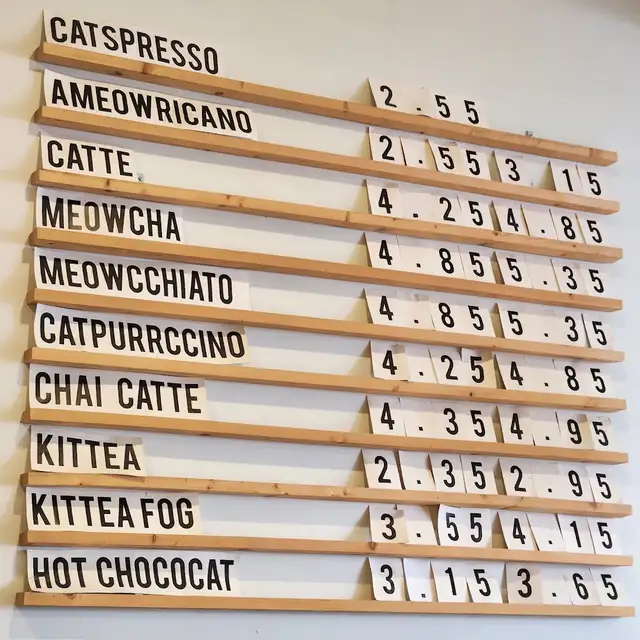 CATSPRESSO 2.55
AMEOWRICANO 2.55 3.15
CATTE 4.25 4.85
MEOWCHA 4.85 5.35
MEOWCCHIATO 4.85 5.35
CATPURRCCINO 4.25 4.85
CHAI CATTE 4.35 4.95
KITTEA 2.35 2.95
KITTEA FOG 3.55 4.15
HOT CHOCOCAT 3.15 3.65